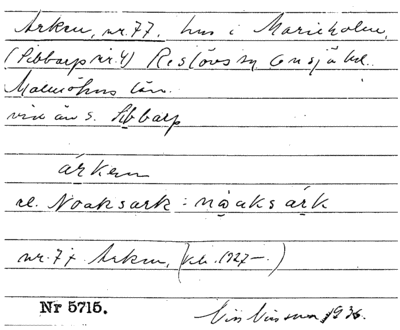 Arken, nr. 77. hus i Marieholm,
(Sibbarp nr. 4) Reslövs sn Onsjö hd.
Malmöhus län.
vid ån s. Sibbarp
árken
el. Noaksark: nåaks árk
nr. 77 Arken, (kb. 1927–)
Nr 5715. Nils Nilsson 1936.